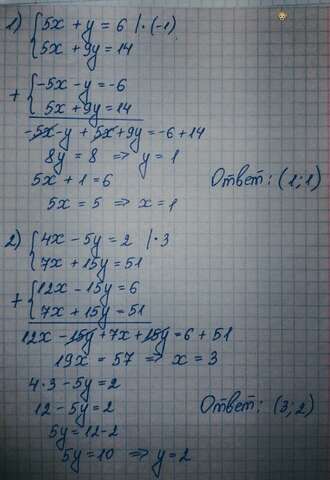 1) { 5x + y = 6 | · (-1)
5x + 9y = 14
+ { -5x - y = -6
5x + 9y = 14
-5x - y + 5x + 9y = -6 + 14
8y = 8 ⇒ y = 1
5x + 1 = 6
5x = 5 ⇒ x = 1
Ответ: (1; 1)
2) { 4x - 5y = 2 | · 3
7x + 15y = 51
+ { 12x - 15y = 6
7x + 15y = 51
12x - 15y + 7x + 15y = 6 + 51
19x = 57 ⇒ x = 3
4 · 3 - 5y = 2
12 - 5y = 2
5y = 12 - 2
5y = 10 ⇒ y = 2
Ответ: (3; 2)